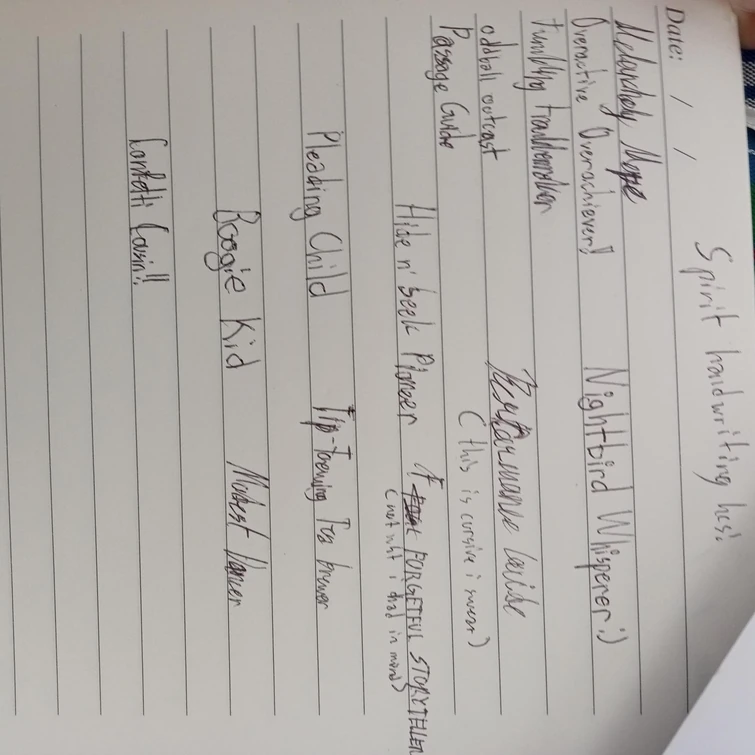 Spirit handwriting hcs!
Date: / /
Melancholy Mope
Overactive Overachiever!!
Nightbird Whisperer :)
Tumbling Troublemaker
oddball outcast
Performance Guide
(this is cursive i swear)
Passage Guide
Hide n' Seek Pioneer
FORGETFUL STORYTELLER
(not wht i had in mind)
Pleading Child
Tip-Toeing Tea brewer
Boogie Kid
Modest Dancer
Confetti Cousin!!